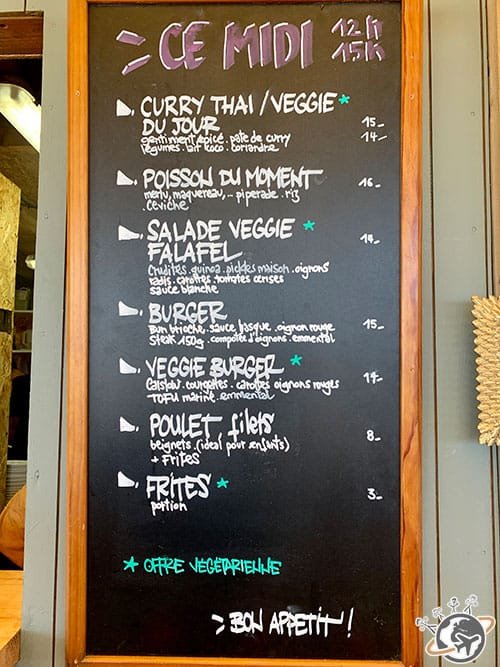 CE MIDI 12H
15H
CURRY THAI / VEGGIE *
DU JOUR 15_
gentiment épicé . pate de curry 14_
légumes . lait coco . coriandre
POISSON DU MOMENT 16_
merlu, maquereau, .. piperade . riz
. ceviche
SALADE VEGGIE *
FALAFEL 14_
Crudités . quinoa . pickles maison . oignons
radis . carottes . tomates cerises
sauce blanche
BURGER 15_
Bun brioché . sauce basque . oignon rouge
Steak 150g . compotée d'oignons . emmental
VEGGIE BURGER * 14_
Colslow . courgettes . carottes oignons rouges
TOFU mariné . emmental
POULET filets 8_
beignets (ideal pour enfants)
+ Frites
FRITES * 3_
portion
* OFFRE VÉGÉTARIENNE
BON APPETIT !